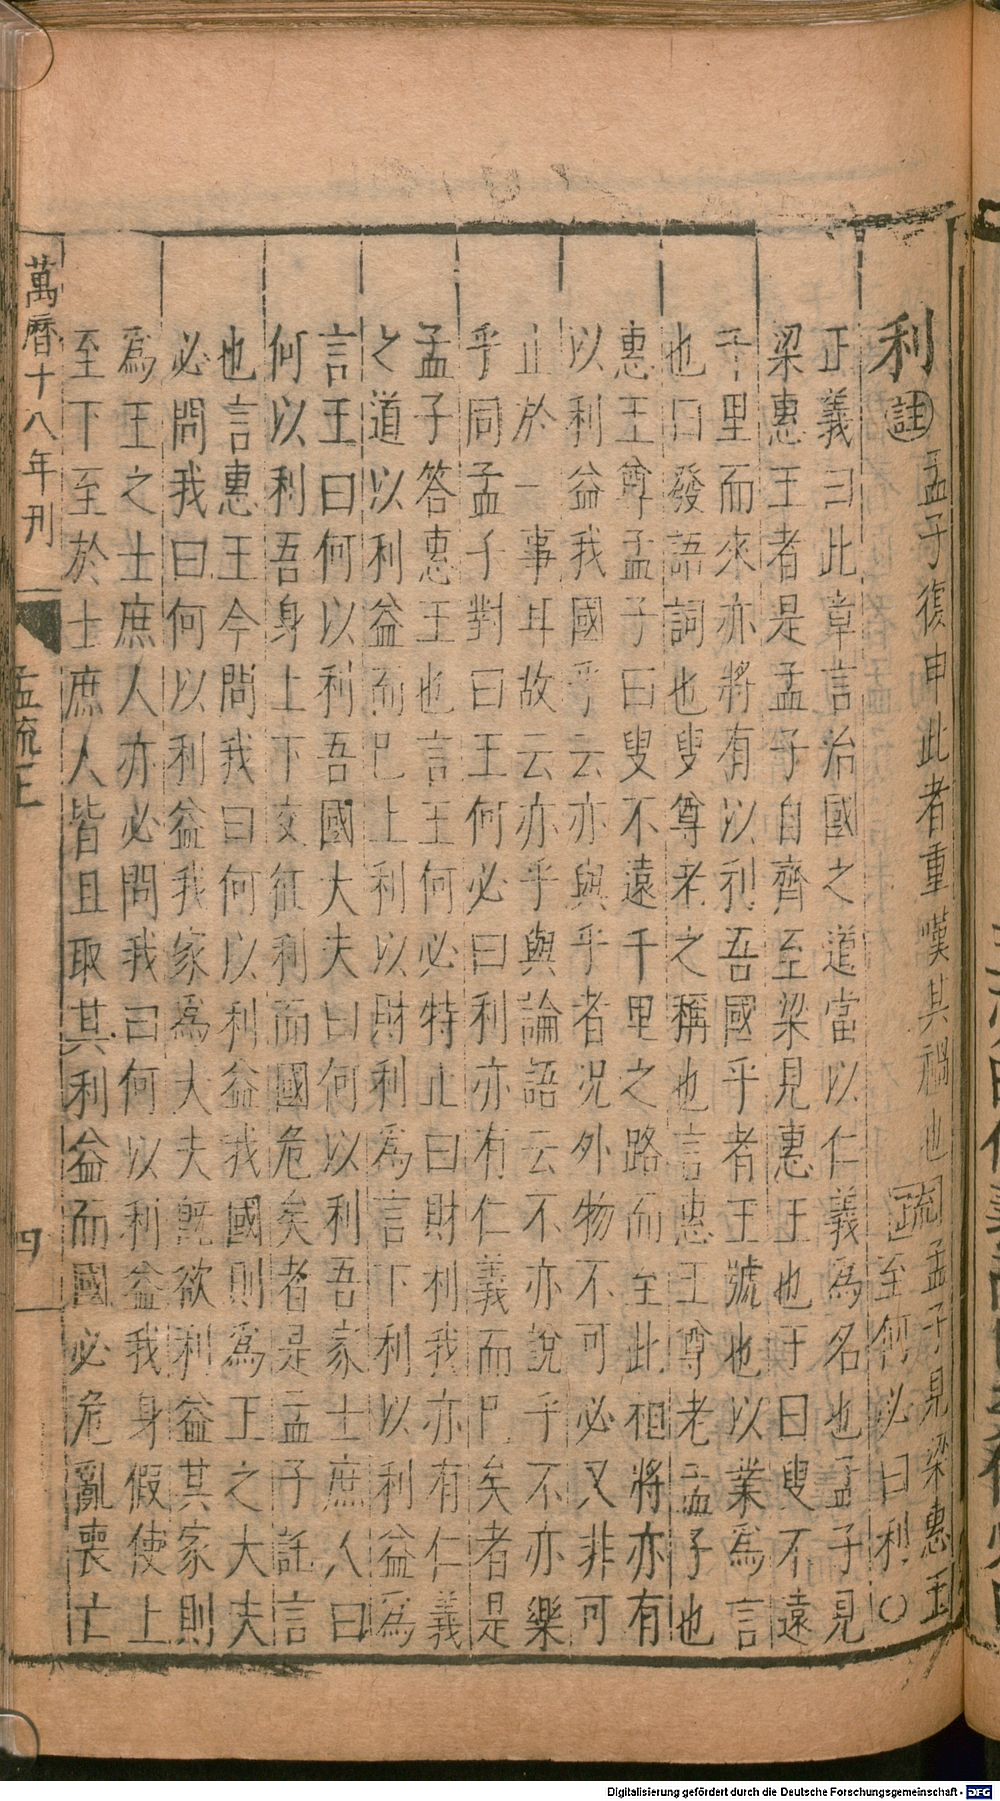 利註孟子復申此者重嘆其禍也疏孟子見梁惠王
正至何必曰利○
正義曰此章言治國之道當以仁義爲名也孟子見
梁惠王者是孟子自齊至梁見惠王也王曰叟不遠
千里而來亦將有以利吾國乎者王號也以業爲言
也曰發語詞也叟尊老之稱也言惠王尊老孟子也
惠王尊孟子曰叟不遠千里之路而至此相將亦有
以利益我國乎云亦與乎者况外物不可必又非可
止於一事耳故云亦乎與論語云不亦說乎不亦樂
乎同孟子對曰王何必曰利亦有仁義而巳矣者是
孟子答惠王也言王何必特止曰財利我亦有仁義
之道以利益而巳上利以財利爲言下利以利益爲
言王曰何以利吾國大夫曰何以利吾家士庶人曰
何以利吾身上下交征利而國危矣者是孟子託言
也言惠王今問我曰何以利益我國則爲王之大夫
必問我曰何以利益我家爲大夫旣欲利益其家則
爲王之士庶人亦必問我曰何以利益我身假使上
至下至於士庶人皆且取其利益而國必危亂喪亡
萬曆十八年刊 孟疏上 四
Digitalisierung gefördert durch die Deutsche Forschungsgemeinschaft - DFG